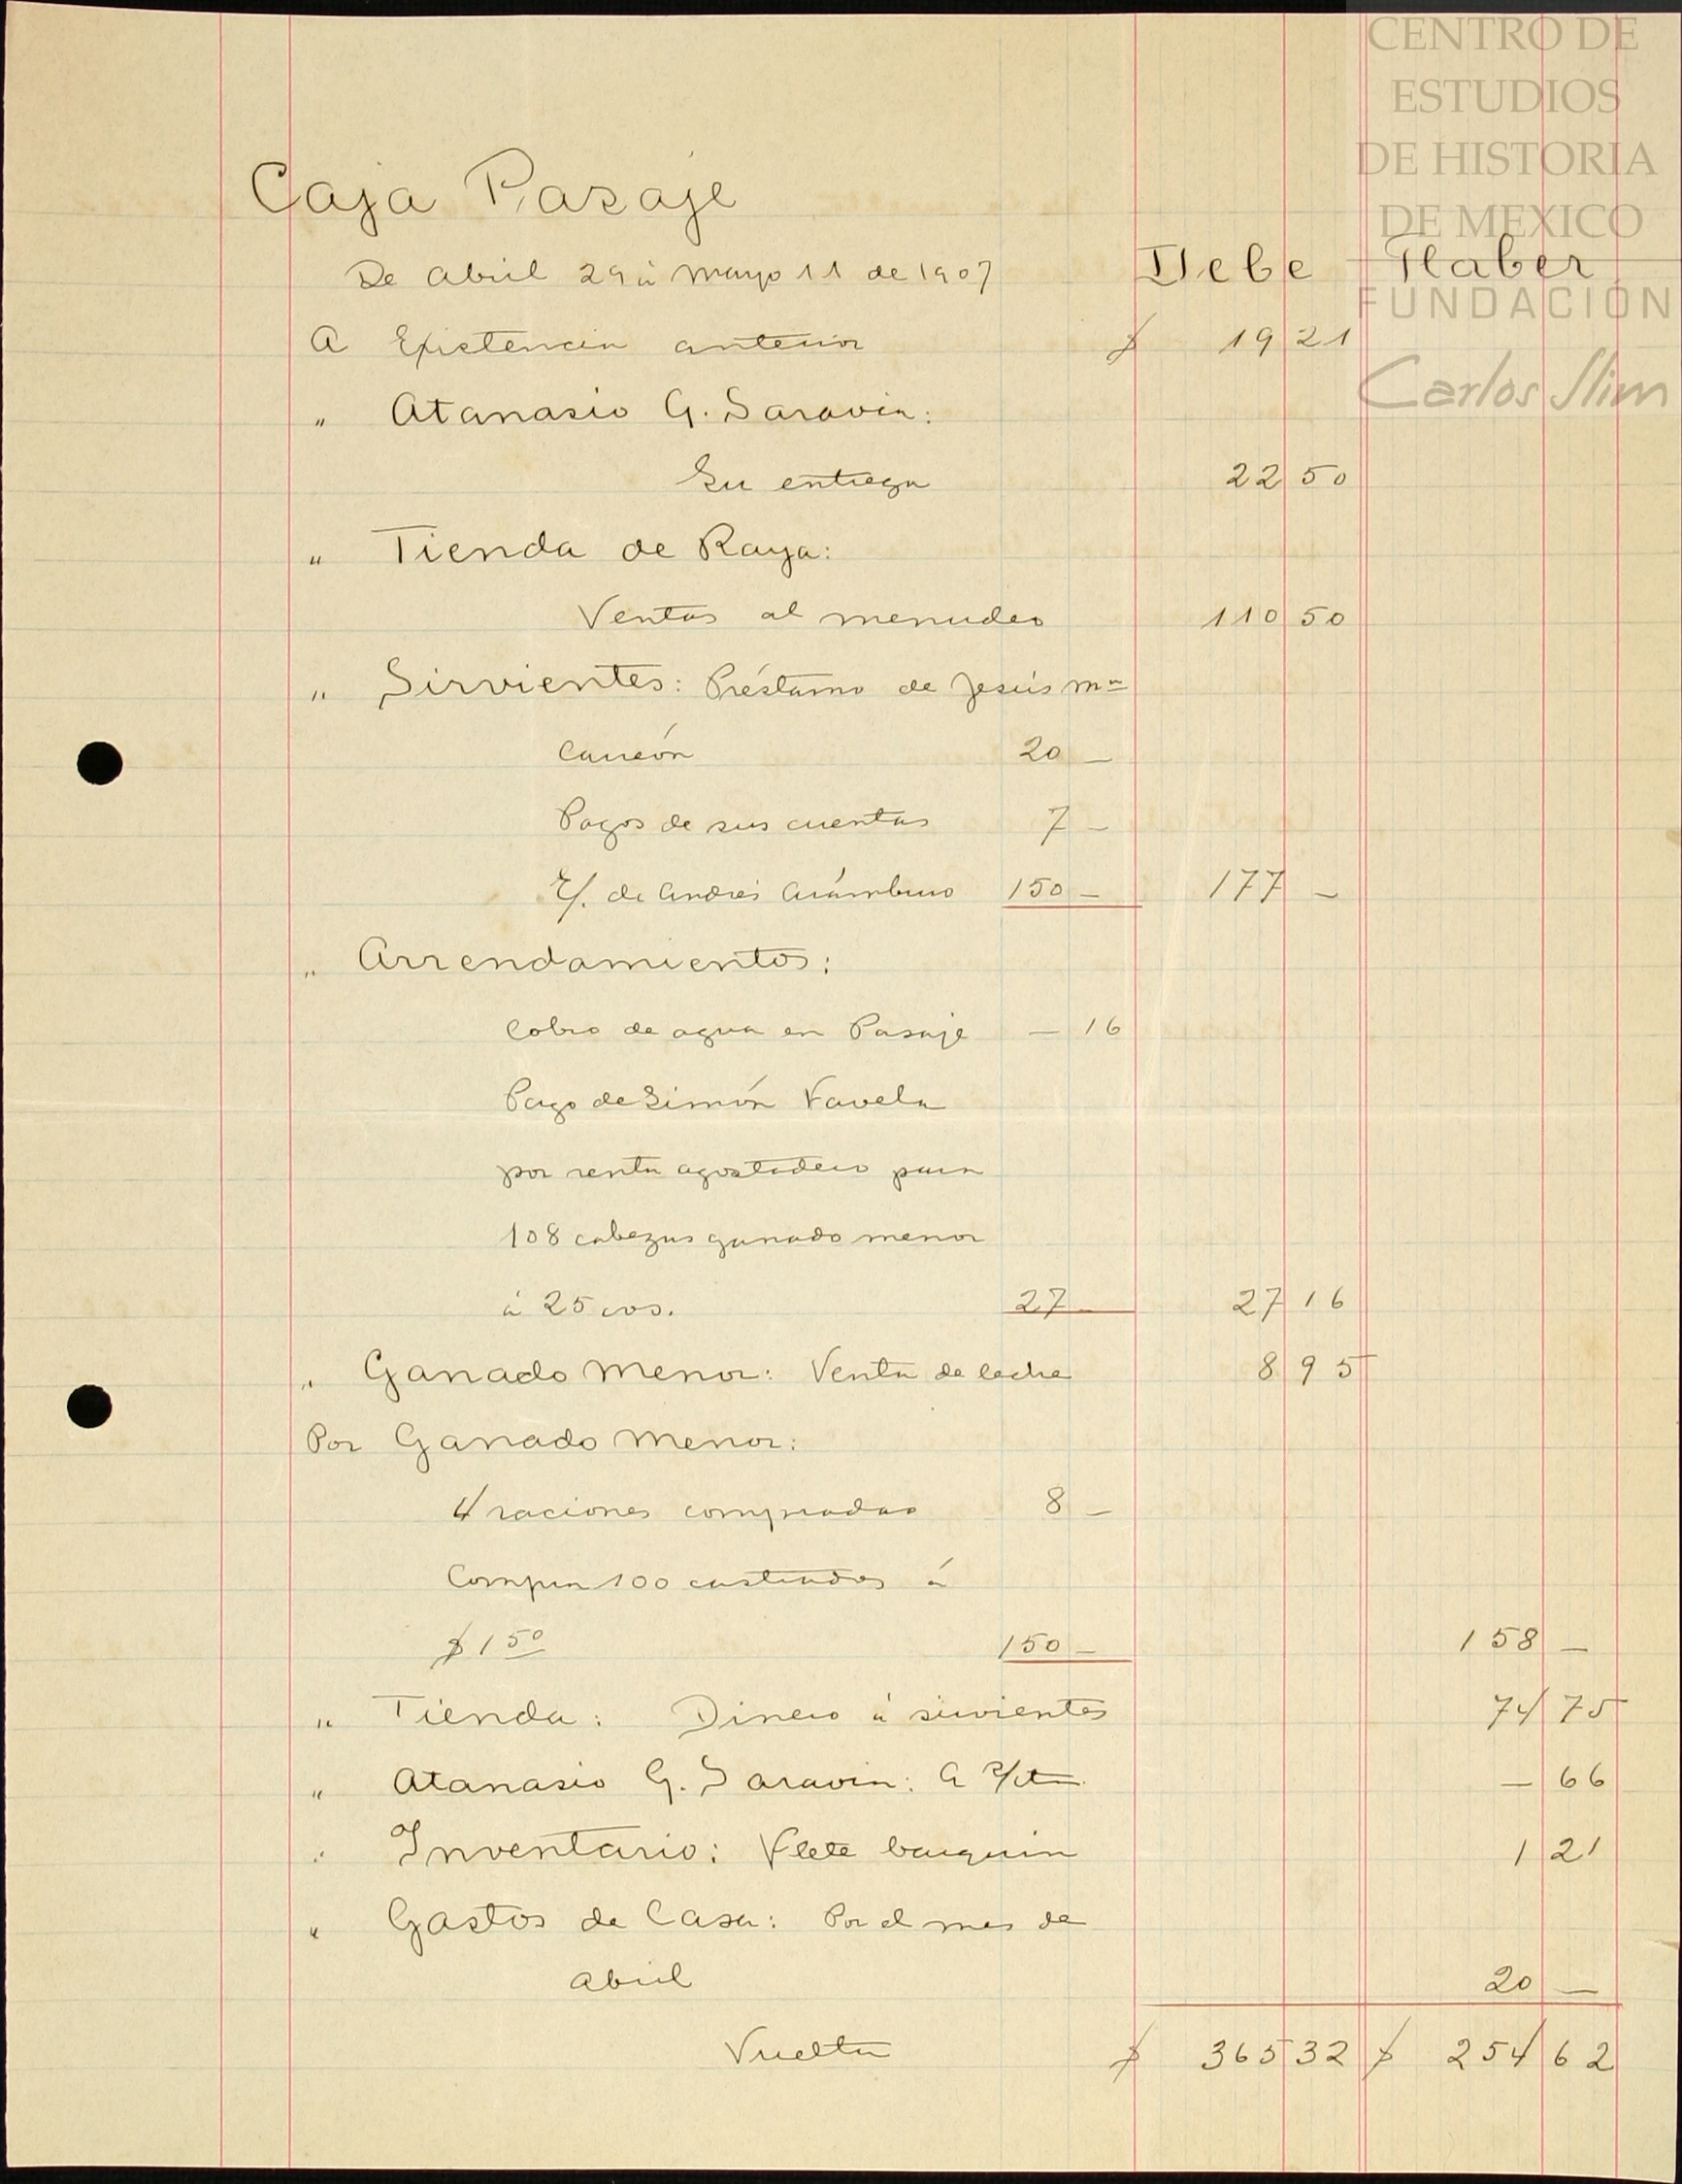 CENTRO DE
ESTUDIOS
DE HISTORIA
DE MEXICO
FUNDACIÓN
Carlos Slim
Caja Pasaje
De Abril 29 á Mayo 11 de 1907 Debe Haber
A Existencia anterior $ 19 21
" Atanasio G. Saravia:
Su entrega 22 50
" Tienda de Raya:
Ventas al menudeo 110 50
" Sirvientes: Préstamo de Jesús Ma
Carreón 20 —
Pagos de sus cuentas 7 —
de Andrés Arámburo 150 — 177 —
" Arrendamientos:
Cobro de agua en Pasaje — 16
Pago de Simón Favela
por renta agostadero para
108 cabezas ganado menor
á 25 cvs. 27 — 27 16
" Ganado Menor: Venta de leche 8 95
Por Ganado Menor:
4 raciones compradas 8 —
Compra 100 castrados á
$ 1 50 150 — 158 —
" Tienda: Dinero á sirvientes 74 75
" Atanasio G. Saravia: A s/cta — 66
" Inventario: Flete barquín 1 21
" Gastos de Casa: Por el mes de
Abril 20 —
Vuelta $ 365 32 $ 254 62